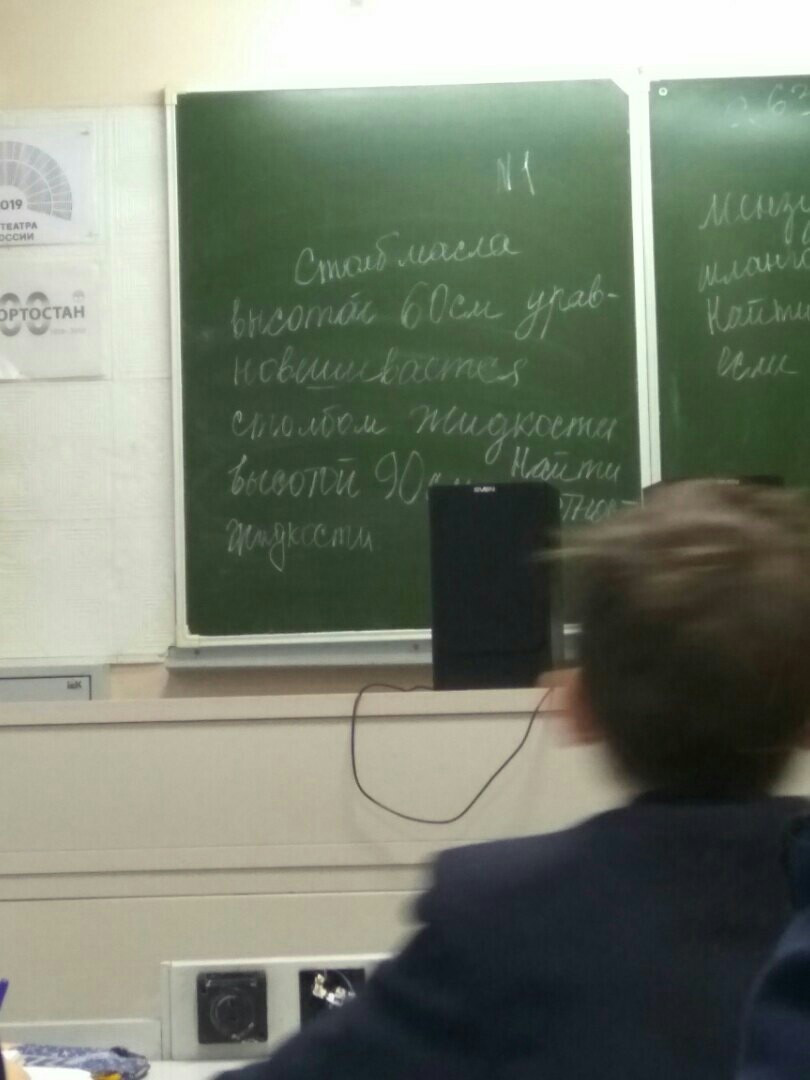 2019
ТЕАТРА
ОССИИ
ОРТОСТАН
N1
Столб масла
высотой 60см урав-
новешивается
столбом жидкости
высотой 90см Найти
жидкости
263
Менз
Найти
если
SVEN
IEK